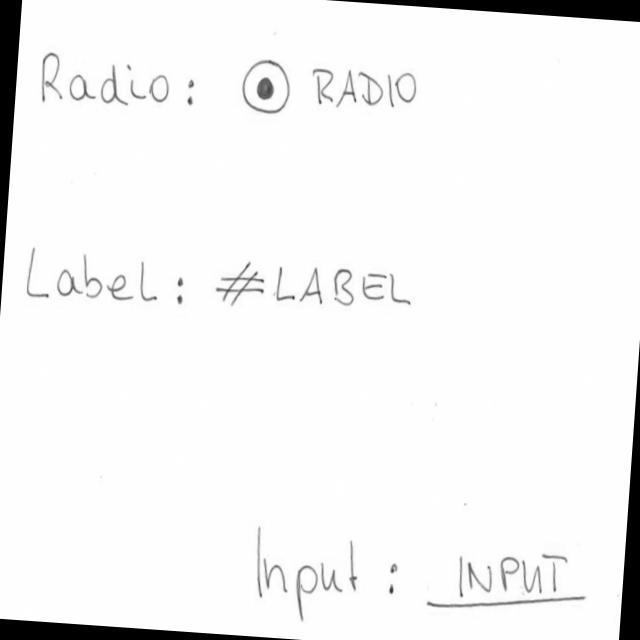 Radio: RADIO
Label: #LABEL
Input: INPUT